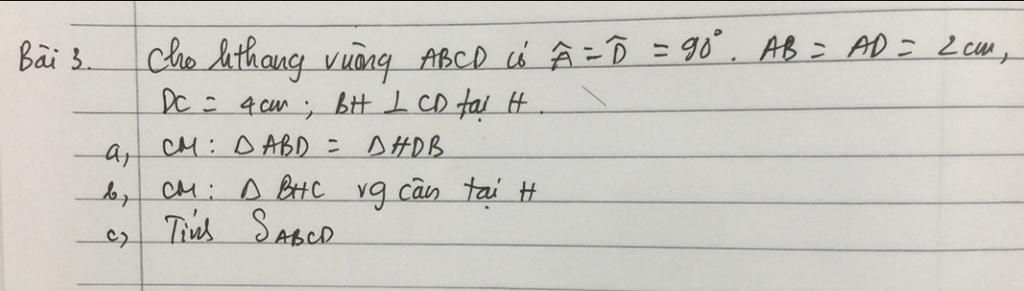 Bài 3. Cho hthang vuông ABCD có Â = D̂ = 90°. AB = AD = 2 cm,
DC = 4 cm ; BH ⊥ CD tại H.
a, CM : Δ ABD = Δ HDB
b, CM : Δ BHC vg cân tại H
c, Tính S_ABCD